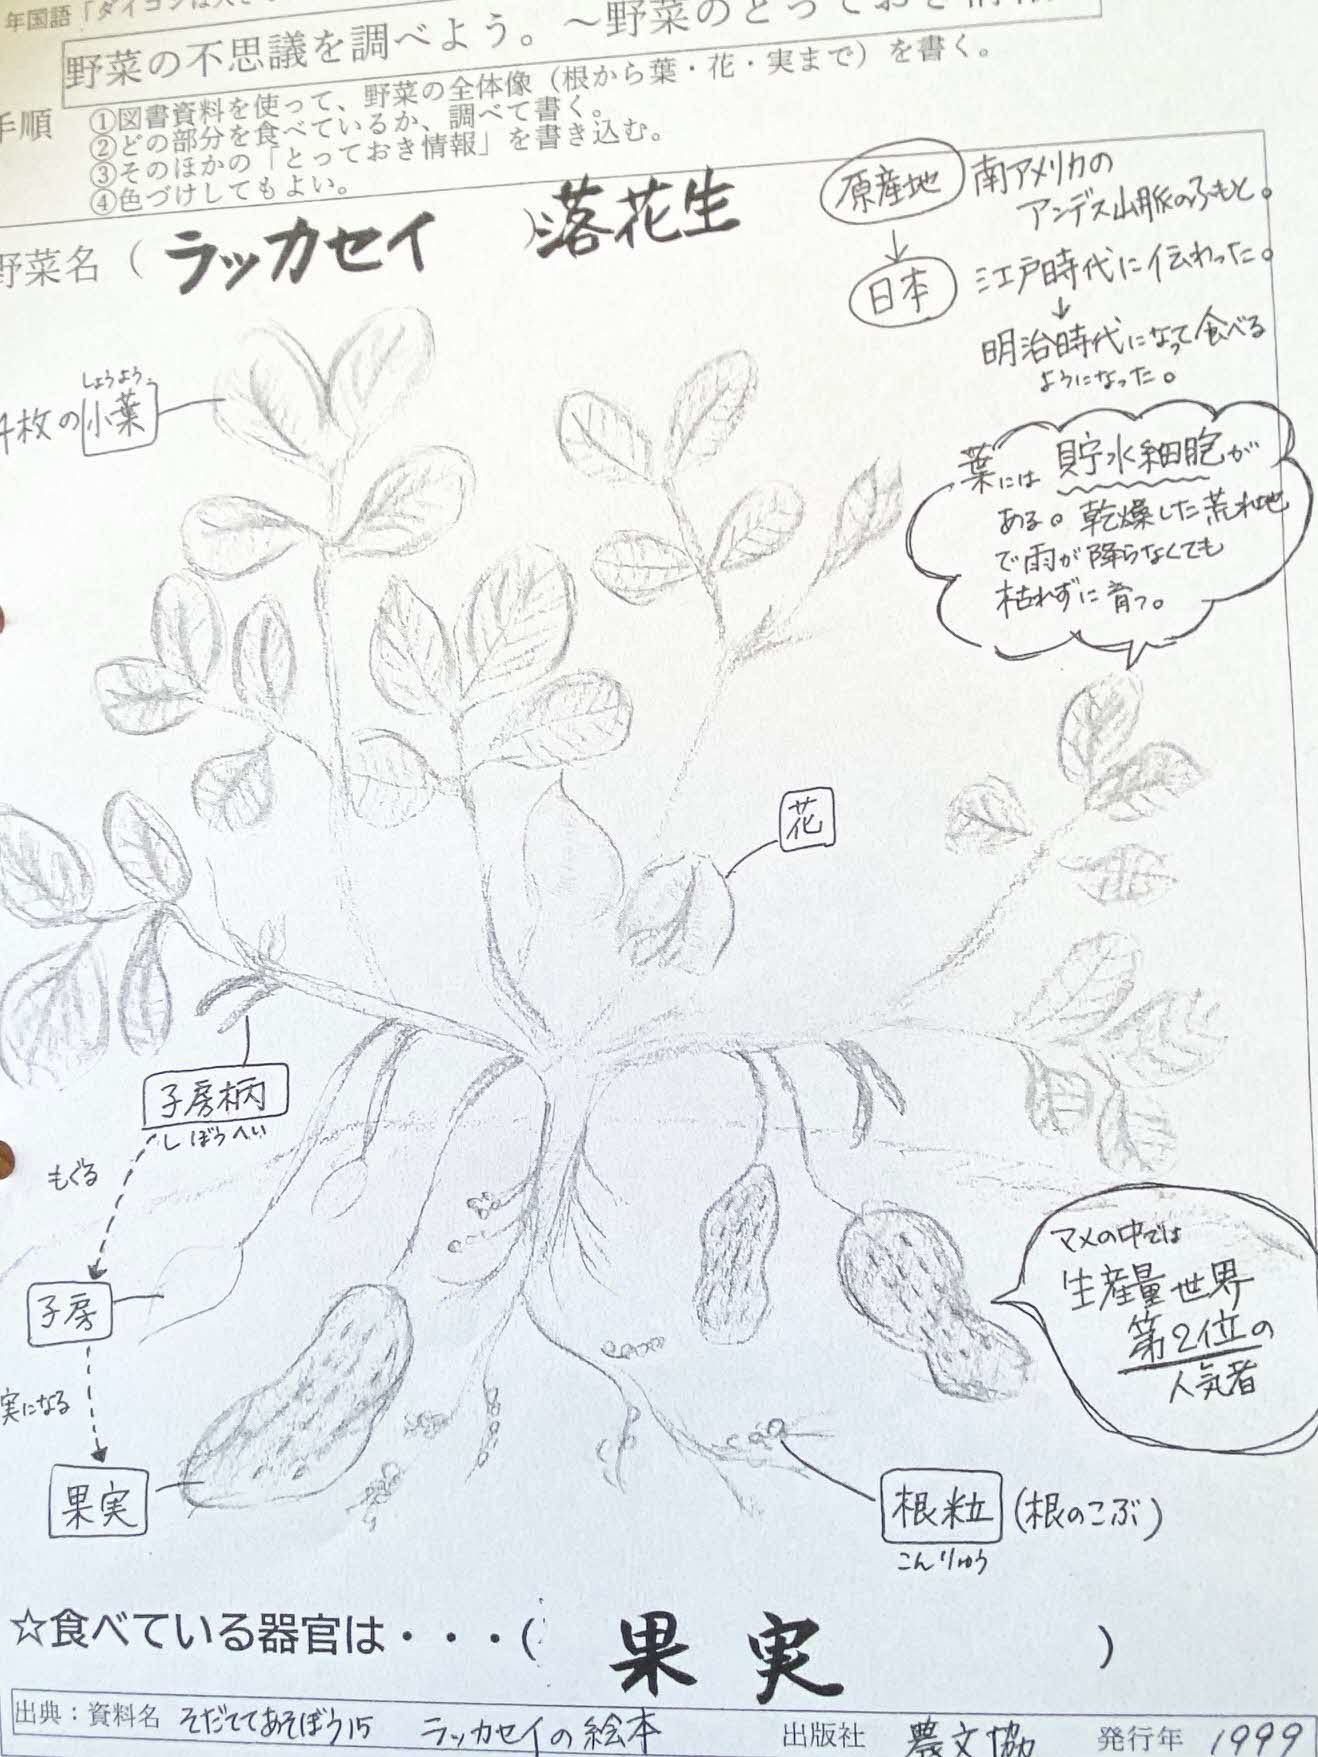 年国語「ダイコンは大き
野菜の不思議を調べよう。～野菜のとっておき情報
手順
①図書資料を使って、野菜の全体像（根から葉・花・実まで）を書く。
②どの部分を食べているか、調べて書く。
③そのほかの「とっておき情報」を書き込む。
④色づけしてもよい。
野菜名（ ラッカセイ ）落花生
原産地 南アメリカの
アンデス山脈のふもと。
日本 江戸時代に伝わった。
明治時代になって食べる
ようになった。
しょうよう
4枚の小葉
葉には貯水細胞が
ある。乾燥した荒れ地
で雨が降らなくても
枯れずに育つ。
花
子房柄
しぼうへい
もぐる
子房
実になる
果実
マメの中では
生産量世界
第2位の
人気者
根粒（根のこぶ）
こんりゅう
☆食べている器官は・・・（ 果実 ）
出典：資料名 そだててあそぼう15 ラッカセイの絵本 出版社 農文協 発行年 1999